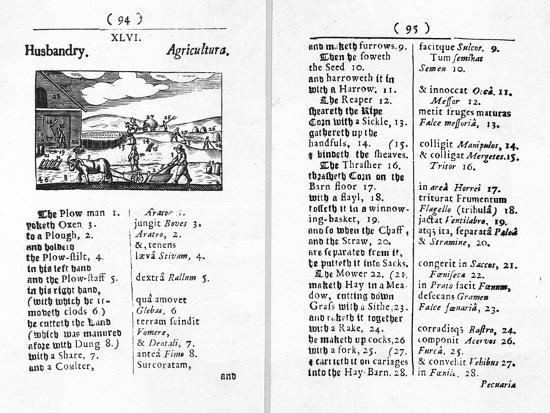 ( 94 )
XLVI.
Husbandry. Agricultura.
The Plow man 1.
yoketh Oxen 3.
to a Plough, 2.
and holdeth
the Plow-stilt, 4.
in his left hand
and the Plow-staff 5.
in his right hand,
(with which he re-
moveth clods 6.)
he cutteth the Land
(which was manured
afore with Dung 8.)
with a Share, 7.
and a Coulter,
Arator 1.
jungit Boves 3.
Aratro, 2.
&, tenens
lævâ Stivam, 4.
dextrâ Rallum 5.
quâ amovet
Glebas, 6
terram scindit
Vomere,
& Dentali, 7.
anteà Fimo 8.
Surcoratam,
and
( 95 )
and maketh furrows. 9.
Then he soweth
the Seed 10.
and harroweth it in
with a Harrow, 11.
The Reaper 12.
sheareth the Ripe
Corn with a Sickle, 13.
gathereth up the
handfuls, 14. (15.
& bindeth the sheaves.
The Thrasher 16.
thrasheth Corn on the
Barn floor 17.
with a flayl, 18.
tosseth it in a winnow-
ing-basket, 19.
and so when the Chaff,
and the Straw, 20.
are separated from it,
he putteth it into Sacks.
The Mower 22. (21.
maketh Hay in a Mea-
dow, cutting down
Grass with a Sithe, 23.
and raketh it together
with a Rake, 24.
he maketh up cocks, 26
with a fork, 25. (27.
& carrieth it on cariages
into the Hay-Barn. 28.
facitque Sulcos. 9.
Tum seminat
Semen 10.
& inoccat Occâ. 11.
Messor 12.
metit fruges maturas
Falce messoriâ, 13.
colligit Manipulos, 14.
& colligat Mergetes. 15.
Tritor 16.
in areâ Horrei 17.
triturat Frumentum
Flagello (tribulâ) 18.
jactat Ventilabro. 19.
atq; ita, separatâ Paleâ
& Stramine, 20.
congerit in Saccos, 21.
Fœniseca 22.
in Prato facit Fœnum,
desecans Gramen
Falce fœnariâ, 23.
corraditq; Rastro, 24.
componit Acervos 26.
Furcâ. 25.
& convehit Vehibus 27.
in Fœnile. 28.
Pecuaria